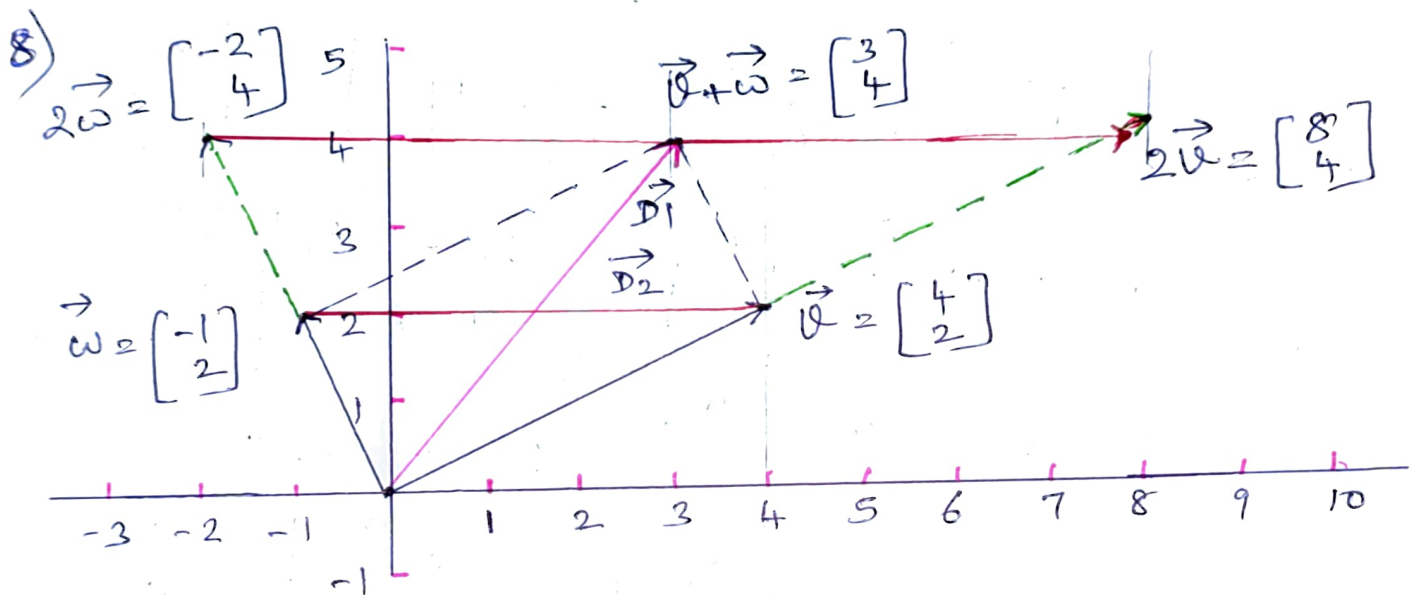 8)
2w⃗ = [-2
4]
5
v⃗+w⃗ = [3
4]
4
2v⃗ = [8
4]
D⃗1
3
D⃗2
w⃗ = [-1
2]
2
v⃗ = [4
2]
1
-3 -2 -1 1 2 3 4 5 6 7 8 9 10
-1